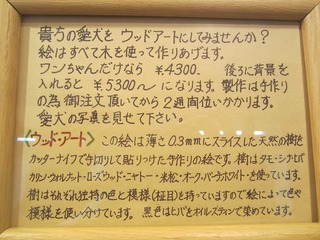 貴方の愛犬を ウッドアートにしてみませんか?
絵はすべて木を使って作りあげます。
ワンちゃんだけなら ¥4300- 後ろに背景を
入れると ¥5300〜 になります。製作は手作り
の為 御注文 頂いてから 2週間位いかかります。
愛犬の写真を見せて下さい。
<ウッド・アート> この絵は薄さ0.3mmにスライスした天然の樹を
カッターナイフで手切りして貼りつけた手作りの絵です。樹はタモ・シナ・ビバ
カリン・ウォルナット・ローズウッド・ニャトー・米松・オーク・バーズ・ホワイトを使っています。
樹はそれぞれ独特の色と模様(柾目)を持っていますので絵によって色や
模様を使い分けています。 黒色はヒバをオイルステインで染めています。